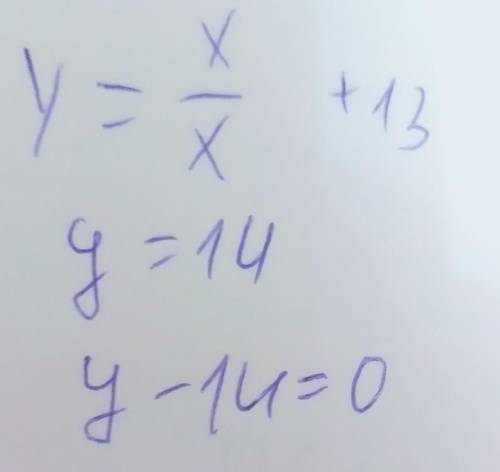 y = x/x + 13
y = 14
y - 14 = 0